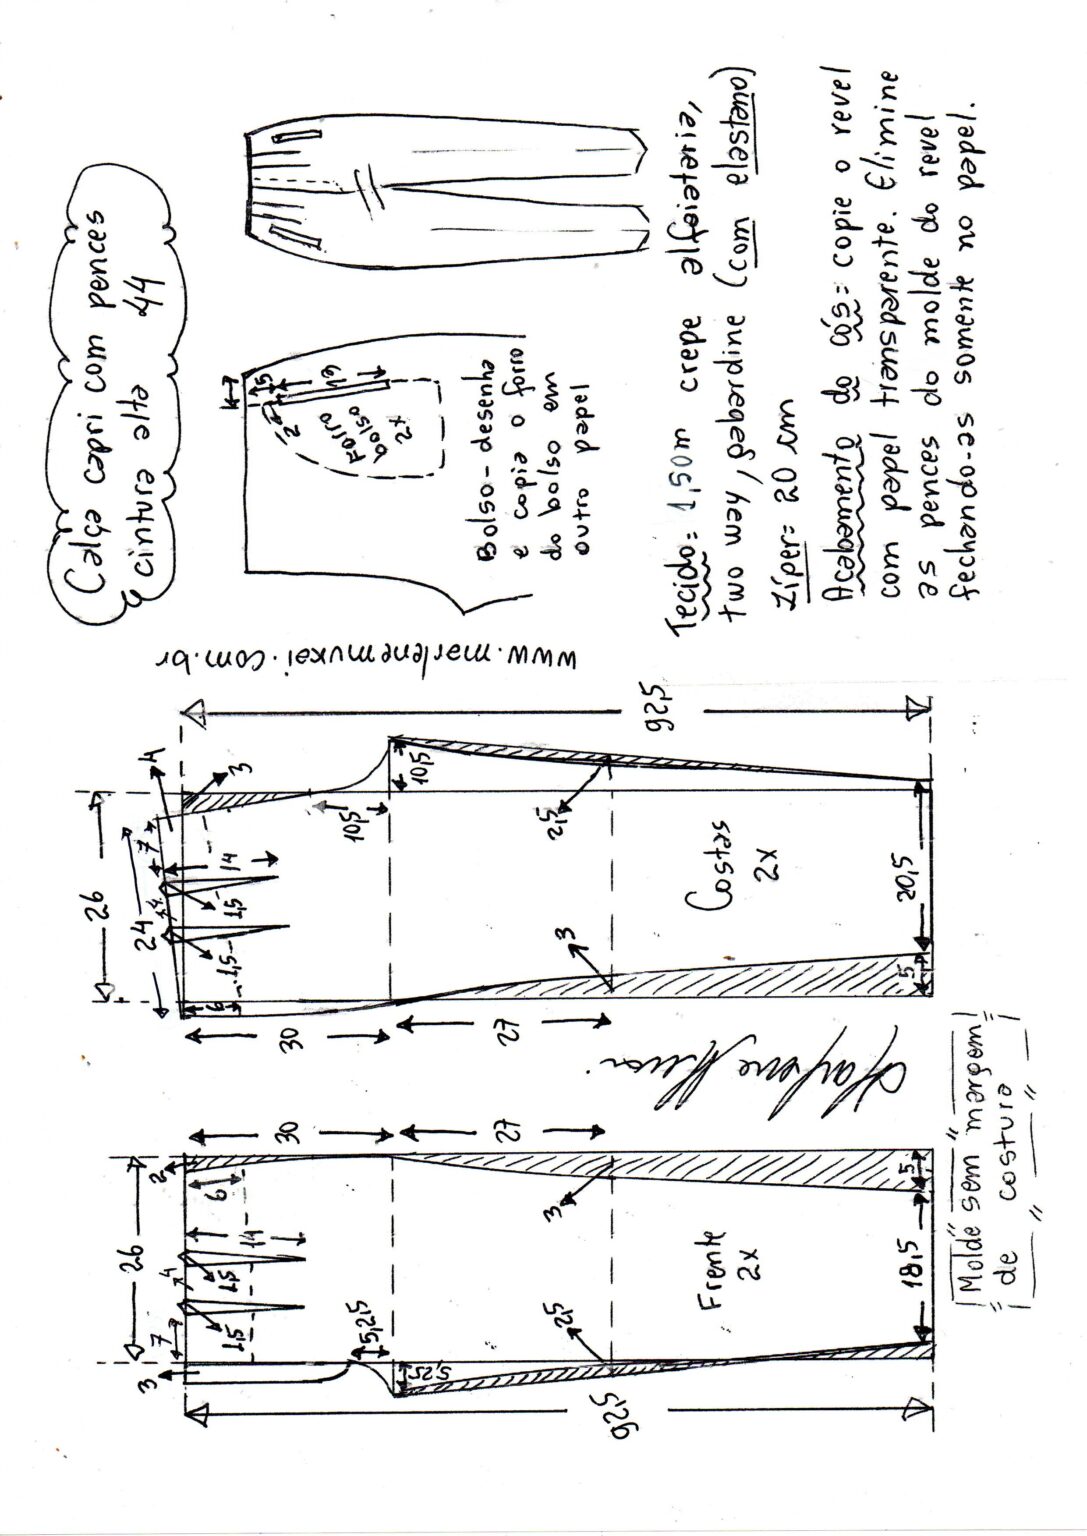 Calça capri com pences
cintura alta 44
5
19
2
Forro
bolso
2x
Bolso-desenha
e copia o forro
do bolso em
outro papel
Tecido= 1,50m crepe alfaiataria,
two way, gabardine (com elastano)
Zíper= 20 cm
Acabamento do cós= copie o revel
com papel transparente. Elimine
as pences do molde do revel
fechando-as somente no papel.
www.marlenemukai.com.br
26
24
4
3
7
4
14
1,5
1,5
6
30
27
10,5
10,5
2,5
3
Costas
2x
20,5
5
92,5
26
2
6
14
4
7
1,5
1,5
3
30
27
5,25
5,25
2,5
3
Frente
2x
18,5
5
92,5
Marlene Mukai
Molde sem margem
de costura